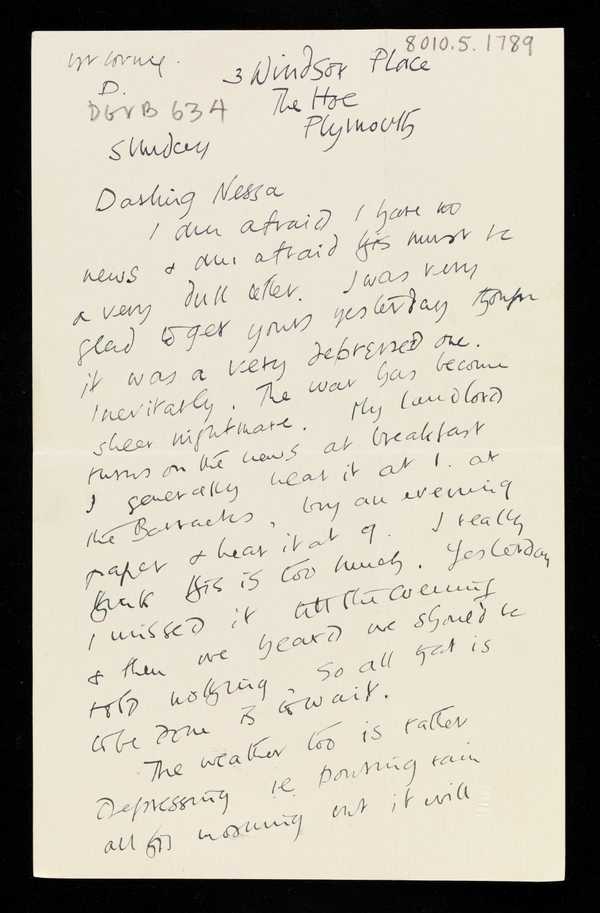 8010.5.1789
3 Windsor Place
D.
DGVB 634
The Hoe
Plymouth
Sunday
Darling Nessa
I am afraid I have no
news & am afraid this must be
a very dull letter. I was very
glad to get yours yesterday though
it was a very depressed one.
Inevitably. The war has become
sheer nightmare. My landlord
turns on the news at breakfast
I generally hear it at 1. at
the Barracks, buy an evening
paper & hear it at 9. I really
think this is too much. Yesterday
I missed it till the evening
& then we heard we should be
told nothing. So all that is
to be done is to wait.
The weather too is rather
depressing ie pouring rain
all this morning but it will